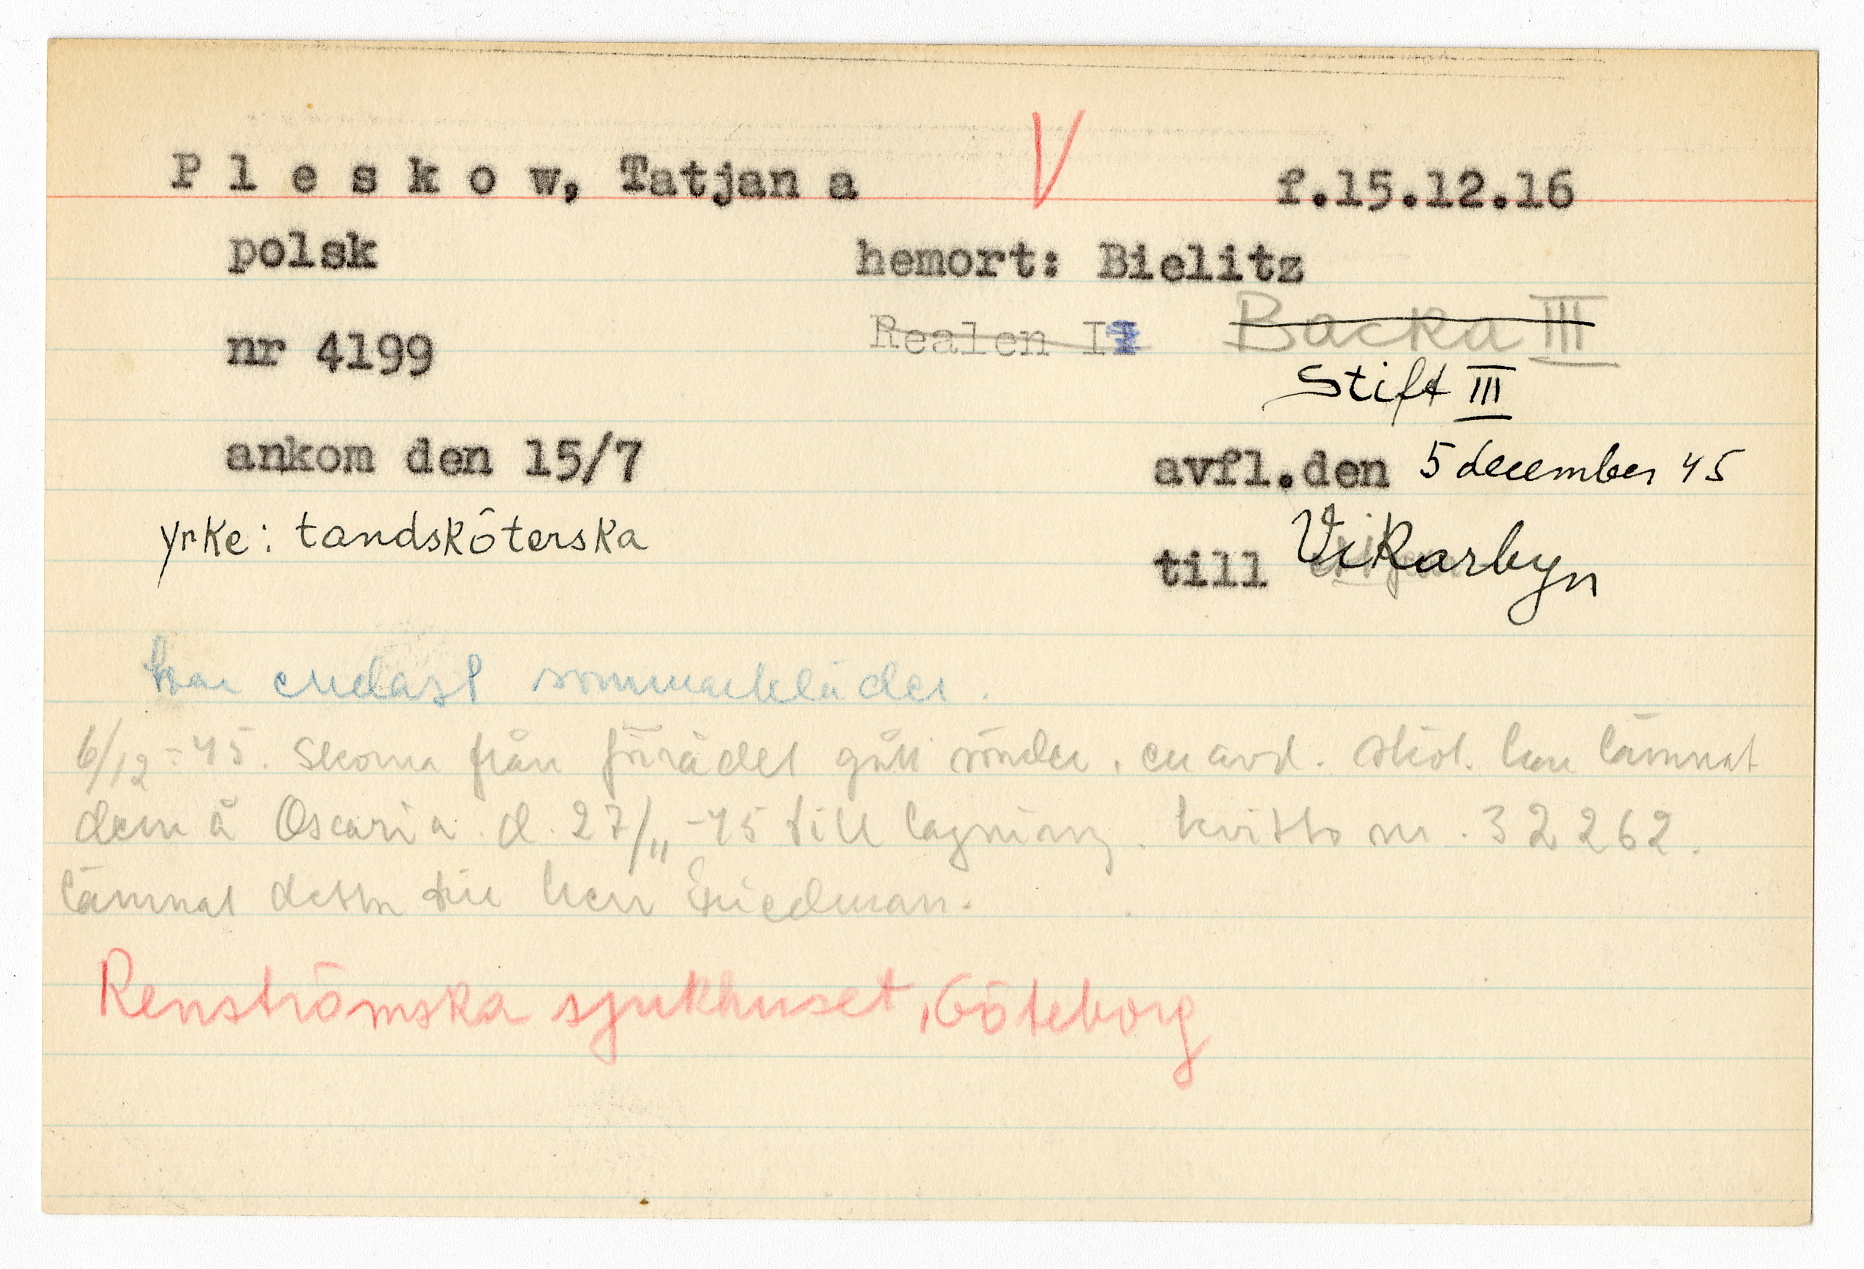 P l e s k o w, Tatjan a V f.15.12.16
polsk hemort: Bielitz
nr 4199 Realen II Backa III
Stift III
ankom den 15/7 avfl.den 5 december 45
yrke: tandsköterska till Vikarbyn
har endast sommarkläder.
6/12-45. Skorna från förrådet gått sönder, en avd. sköt. har lämnat
dem å Oscaria d. 27/11-45 till lagning. kvitto nr. 32262.
lämnat detta till herr Friedman.
Renströmska sjukhuset, Göteborg